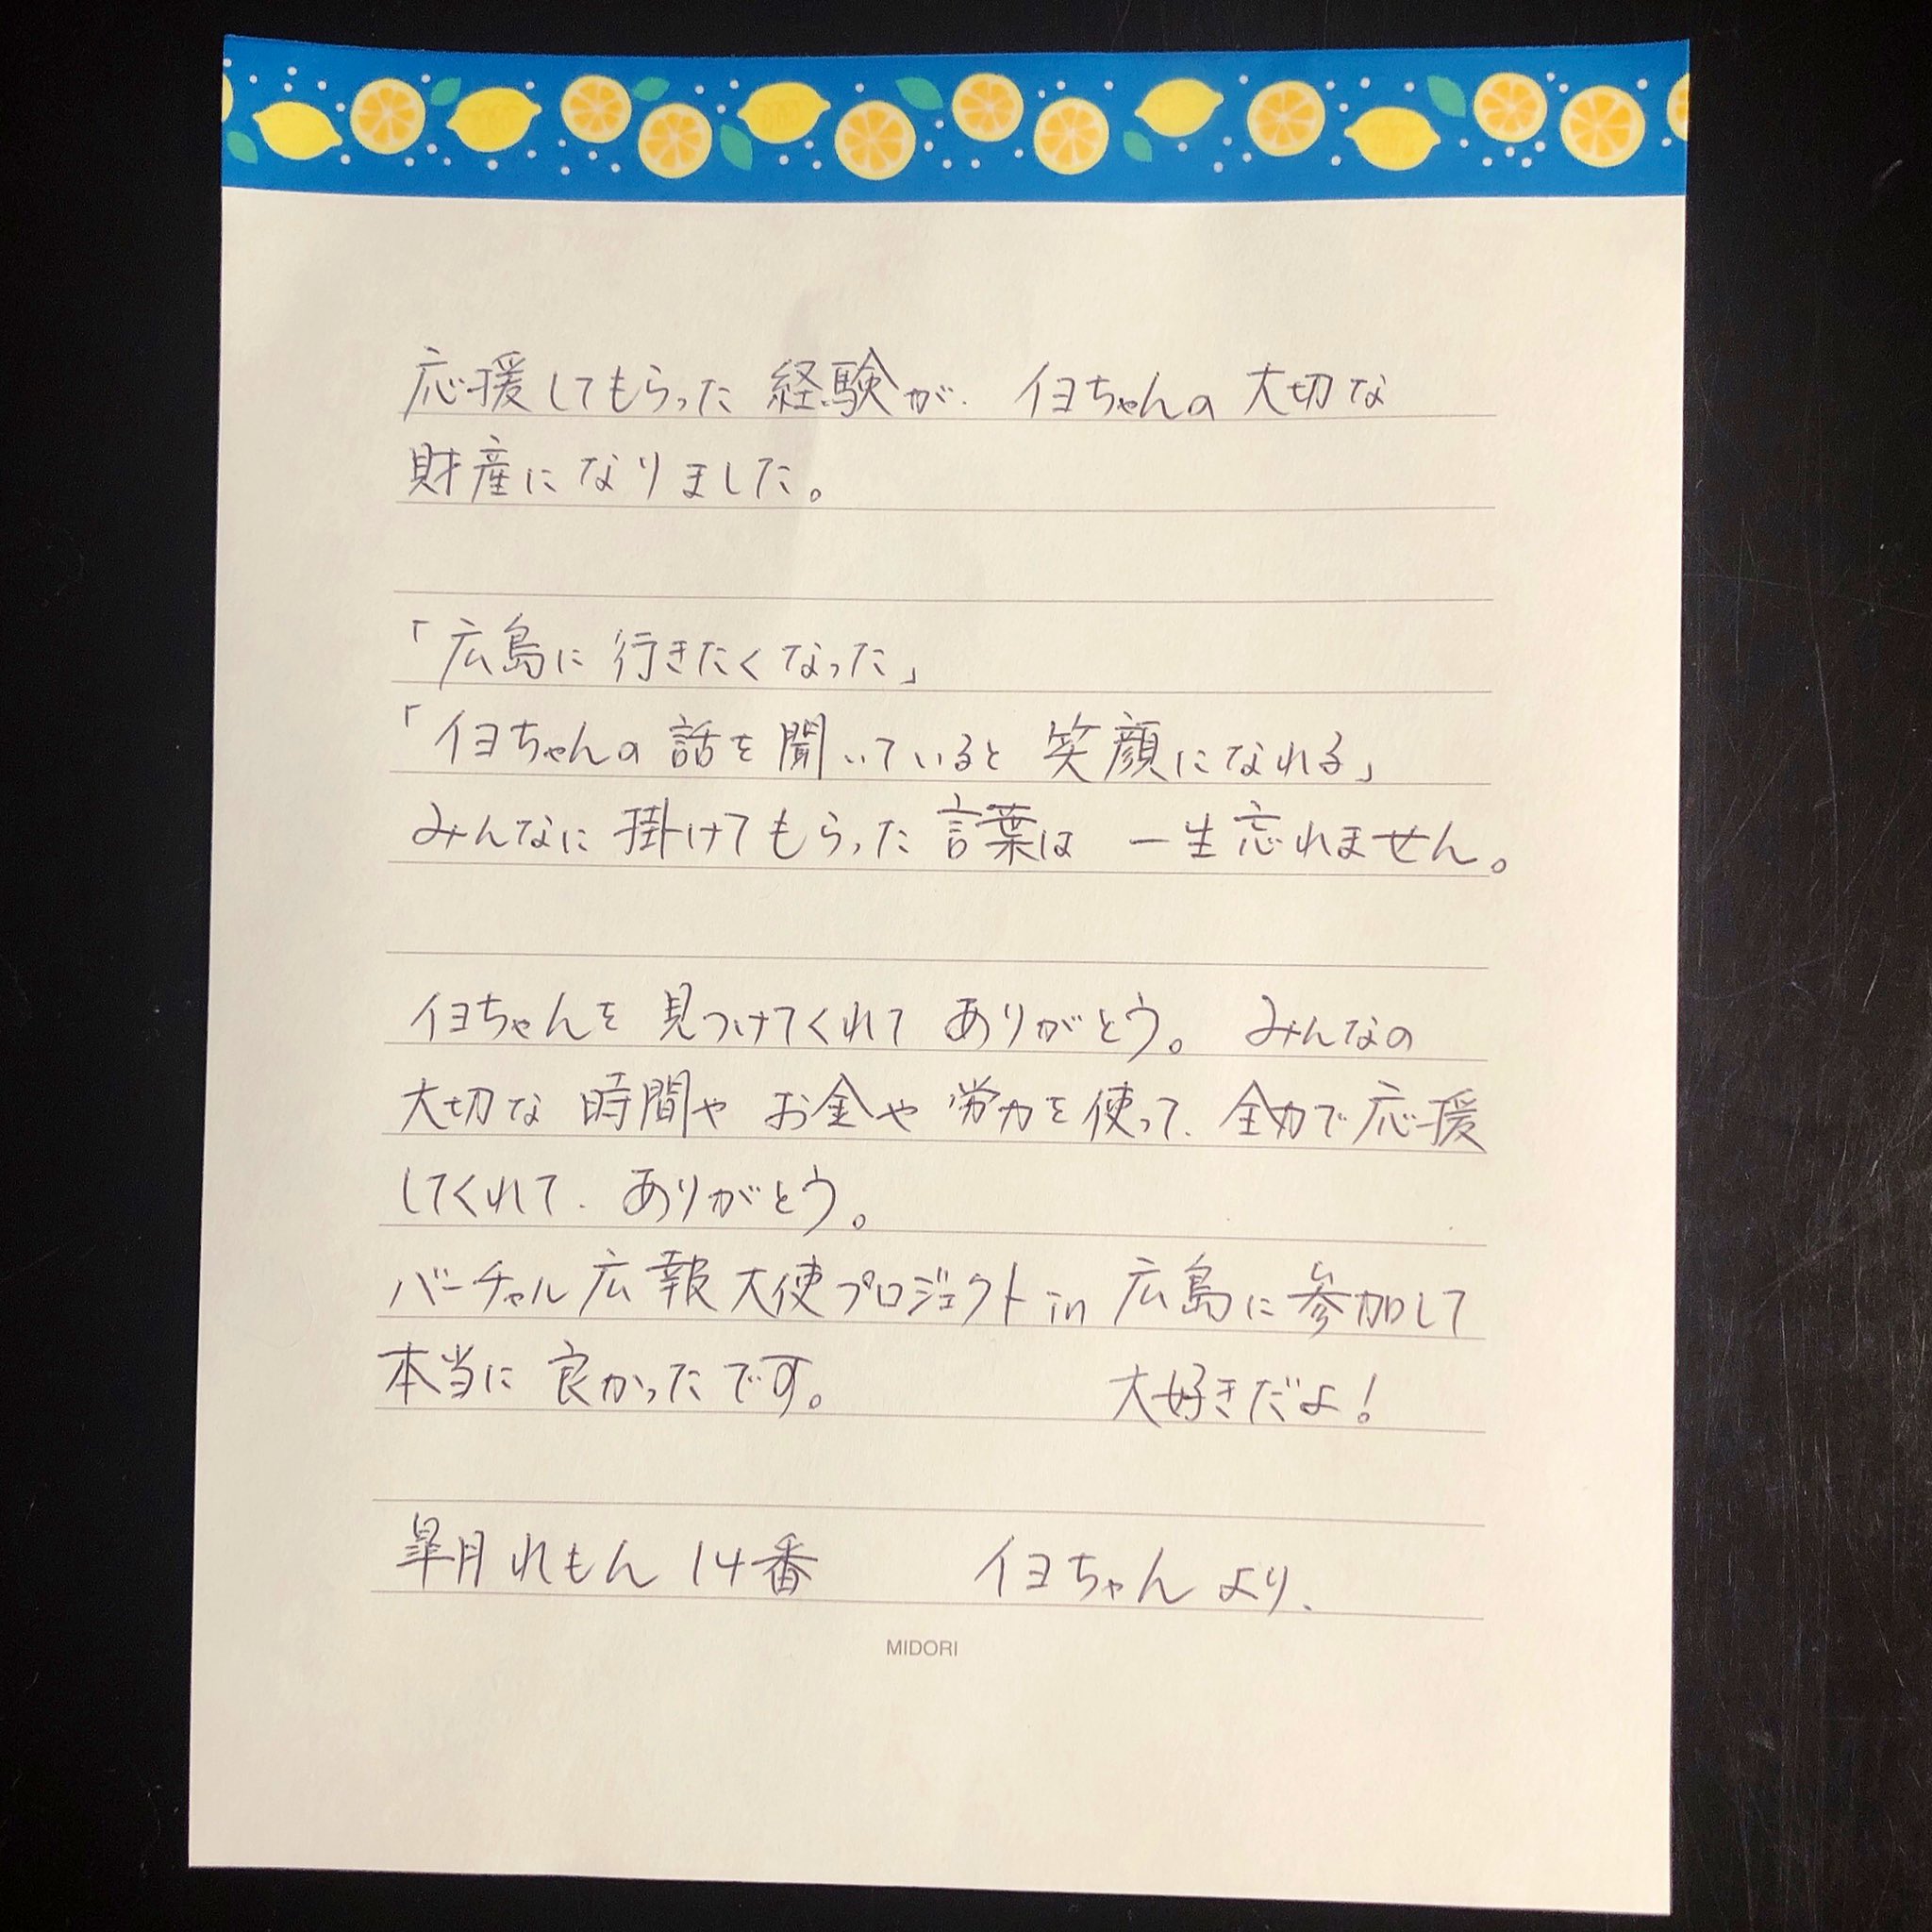 応援してもらった経験が、イヨちゃんの大切な
財産になりました。
「広島に行きたくなった」
「イヨちゃんの話を聞いていると笑顔になれる」
みんなに掛けてもらった言葉は一生忘れません。
イヨちゃんを見つけてくれてありがとう。みんなの
大切な時間やお金や労力を使って、全力で応援
してくれて、ありがとう。
バーチャル広報大使プロジェクトin広島に参加して
本当に良かったです。 大好きだよ!
皐月れもん14番 イヨちゃんより、
MIDORI